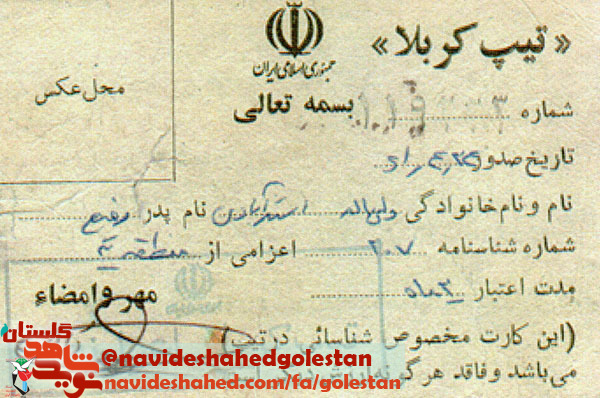 « تیپ کربلا »
جمهوری اسلامی ایران
محل عکس
بسمه تعالی
شماره
تاریخ صدور
نام و نام خانوادگی ولی اله استرآبادی نام پدر رفیع
شماره شناسنامه ۲۰۷ اعزامی از منطقه ۳
مدت اعتبار ۳ ماه
مهر و امضاء
(این کارت مخصوص شناسائی در تیپ)
می باشد و فاقد هر گونه
گلستان
نوید شاهد
@navideshahedgolestan
navideshahed.com/fa/golestan